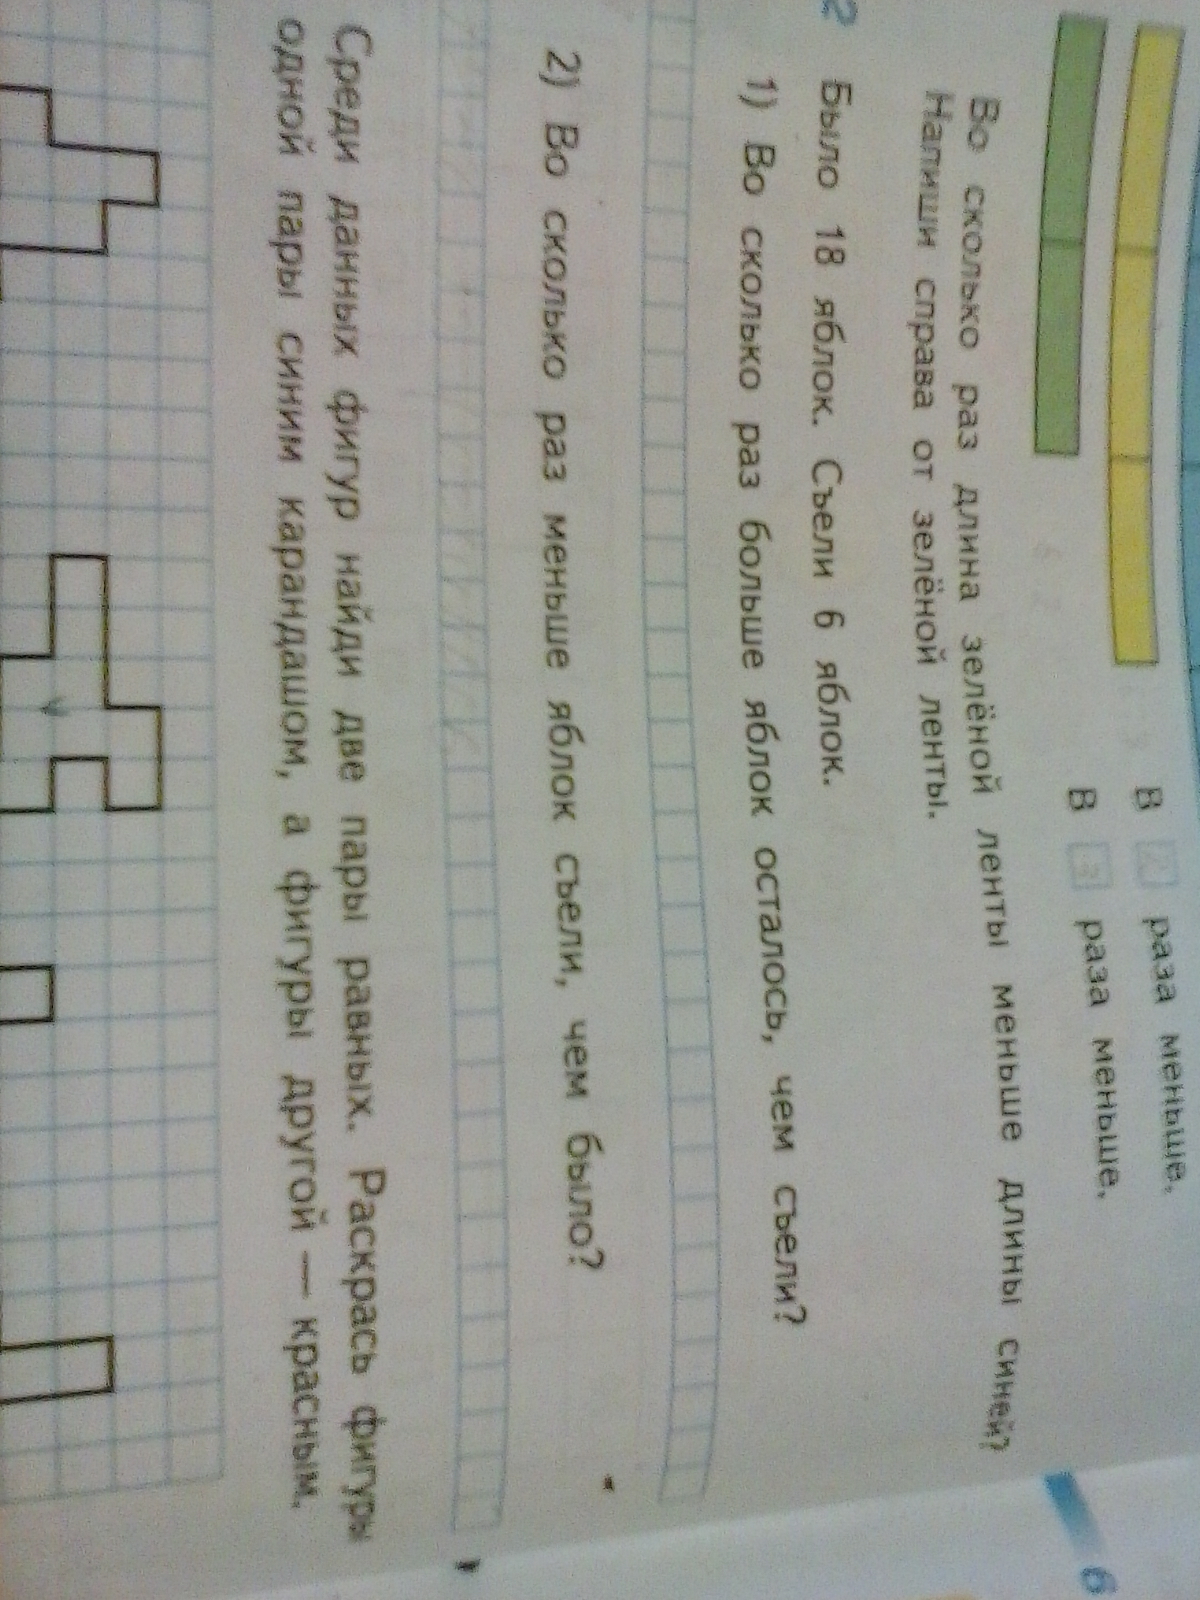 В 2 раза меньше.
В 3 раза меньше.
Во сколько раз длина зелёной ленты меньше длины синей?
Напиши справа от зелёной ленты.
2 Было 18 яблок. Съели 6 яблок.
1) Во сколько раз больше яблок осталось, чем съели?
2) Во сколько раз меньше яблок съели, чем было?
Среди данных фигур найди две пары равных. Раскрась фигуры
одной пары синим карандашом, а фигуры другой — красным.
6